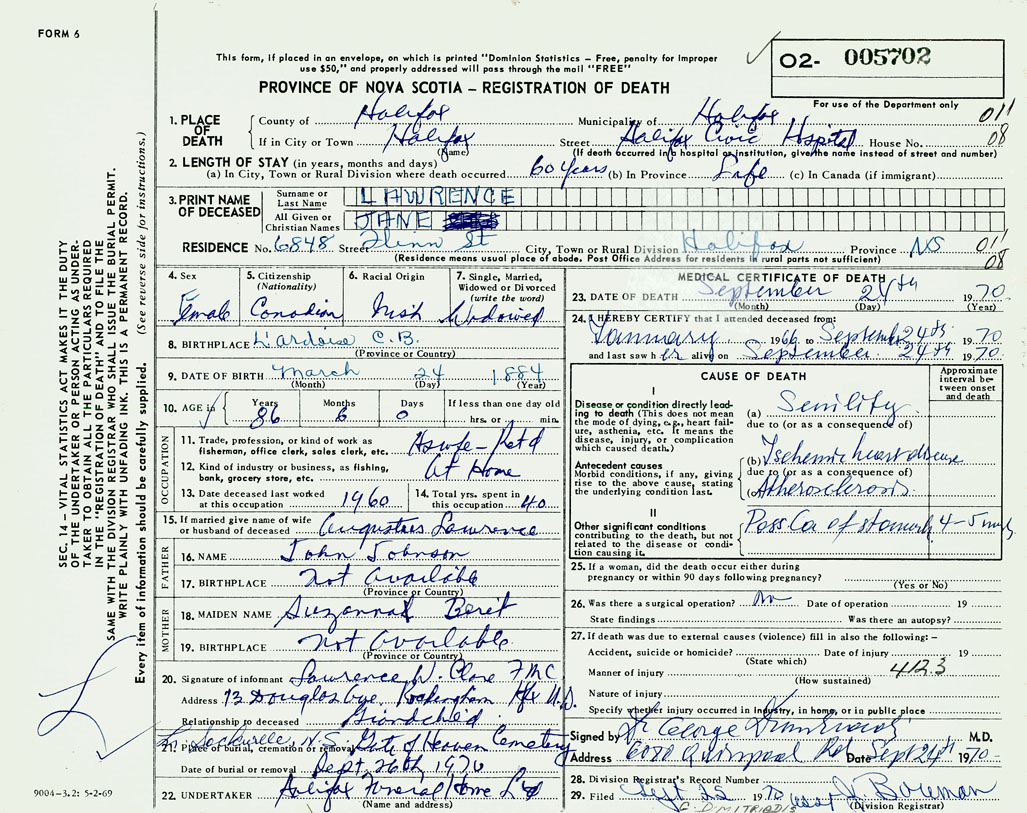 FORM 6
This form, if placed in an envelope, on which is printed "Dominion Statistics – Free, penalty for improper
use $50," and properly addressed will pass through the mail "FREE"
O2- 005702
PROVINCE OF NOVA SCOTIA – REGISTRATION OF DEATH
For use of the Department only
1. PLACE OF DEATH County of Halifax Municipality of Halifax 011
If in City or Town Halifax Street Halifax Civic Hospital House No. 08
(Name) (If death occurred in a hospital or institution, give the name instead of street and number)
2. LENGTH OF STAY (in years, months and days)
(a) In City, Town or Rural Division where death occurred 60 years (b) In Province Life (c) In Canada (if immigrant)
3. PRINT NAME OF DECEASED
Surname or Last Name LAWRENCE
All Given or Christian Names JANE
RESIDENCE No. 6848 Street Flinn St City, Town or Rural Division Halifax Province NS 011
(Residence means usual place of abode. Post Office Address for residents in rural parts not sufficient) 08
4. Sex Female
5. Citizenship (Nationality) Canadian
6. Racial Origin Irish
7. Single, Married, Widowed or Divorced (write the word) Widowed
8. BIRTHPLACE L'ardoise C.B.
(Province or Country)
9. DATE OF BIRTH March 24 1884
(Month) (Day) (Year)
10. AGE in Years 86 Months 6 Days 0 If less than one day old hrs. or min.
OCCUPATION
11. Trade, profession, or kind of work as fisherman, office clerk, sales clerk, etc. Hswfe – Retd
12. Kind of industry or business, as fishing, bank, grocery store, etc. At Home
13. Date deceased last worked at this occupation 1960
14. Total yrs. spent in this occupation 40
15. If married give name of wife or husband of deceased Lawrence
FATHER
16. NAME John Johnson
17. BIRTHPLACE Not Available
(Province or Country)
MOTHER
18. MAIDEN NAME Suzannah
19. BIRTHPLACE Not Available
(Province or Country)
20. Signature of informant Lawrence W.
Address 72 Douglas Ave. Rockingham Hfx
Relationship to deceased Grandchild
L. Sackville, N.S.
21. Place of burial, cremation or removal Gate of Heaven Cemetery
Date of burial or removal Sept. 26th, 1970
22. UNDERTAKER Halifax Funeral Home Ltd
(Name and address)
MEDICAL CERTIFICATE OF DEATH
23. DATE OF DEATH September 24th 1970
(Month) (Day) (Year)
24. I HEREBY CERTIFY that I attended deceased from:
January 1966 to September 24th 1970
and last saw her alive on September 24th 1970
CAUSE OF DEATH
Approximate interval between onset and death
I
Disease or condition directly leading to death (This does not mean the mode of dying, e.g., heart failure, asthenia, etc. It means the disease, injury, or complication which caused death.)
(a) Senility
due to (or as a consequence of)
Antecedent causes
Morbid conditions, if any, giving rise to the above cause, stating the underlying condition last.
(b) Ischemic heart disease
due to (or as a consequence of)
(c) Atherosclerosis
II
Other significant conditions contributing to the death, but not related to the disease or condition causing it.
Poss. Ca of stomach 4-5
25. If a woman, did the death occur either during
pregnancy or within 90 days following pregnancy?
(Yes or No)
26. Was there a surgical operation? No Date of operation 19
State findings Was there an autopsy?
27. If death was due to external causes (violence) fill in also the following: –
Accident, suicide or homicide? Date of injury 19
(State which)
Manner of injury 412.3
(How sustained)
Nature of injury
Specify whether injury occurred in industry, in home, or in public place
Signed by Dr George M.D.
Address 6070 Quinpool Rd Date Sept 24th 1970
28. Division Registrar's Record Number
29. Filed Sept 25 1970 J. Boreman
(Division Registrar)
G. DIMITRIADIS
SEC. 14 – VITAL STATISTICS ACT MAKES IT THE DUTY
OF THE UNDERTAKER OR PERSON ACTING AS UNDER-
TAKER TO OBTAIN ALL THE PARTICULARS REQUIRED
IN THE "REGISTRATION OF DEATH" AND TO FILE THE
SAME WITH THE DIVISION REGISTRAR WHO SHALL ISSUE THE BURIAL PERMIT.
WRITE PLAINLY WITH UNFADING INK. THIS IS A PERMANENT RECORD.
Every item of information should be carefully supplied. (See reverse side for instructions.)
9004-3.2: 5-2-69